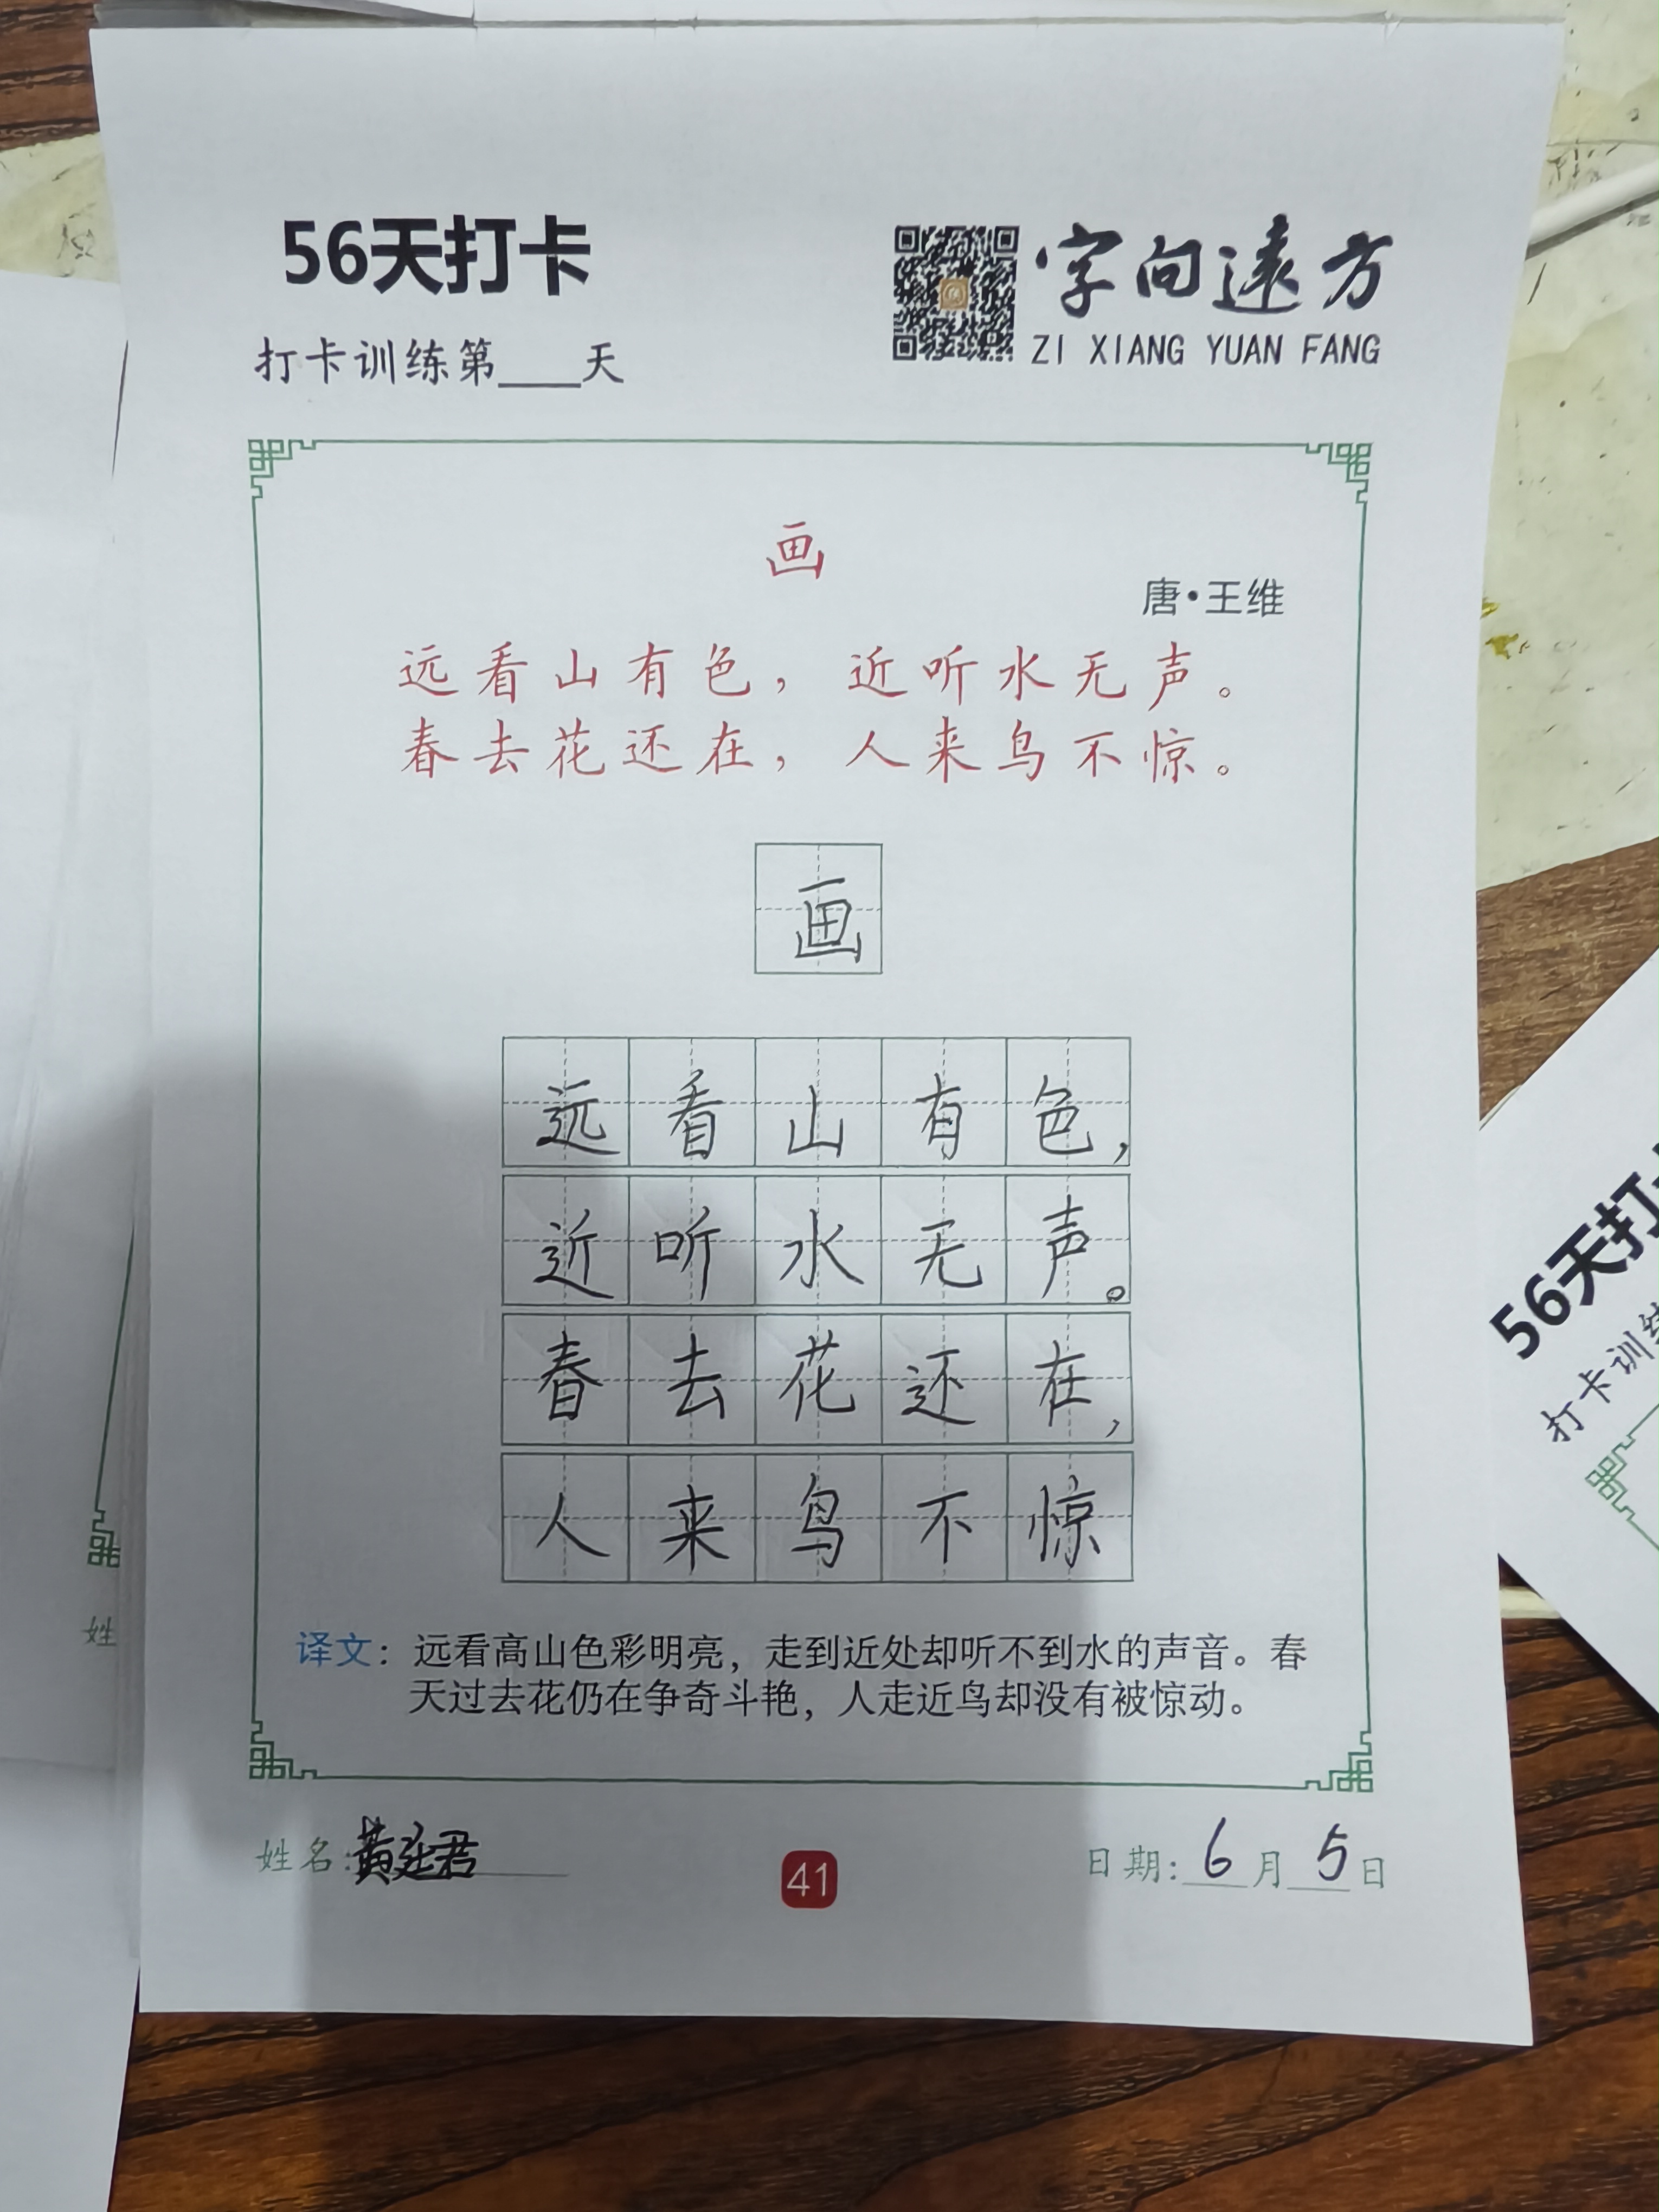 56天打卡
打卡训练第____天
字向遠方
ZI XIANG YUAN FANG
画
唐·王维
远看山有色，近听水无声。
春去花还在，人来鸟不惊。
画
远看山有色，
近听水无声。
春去花还在，
人来鸟不惊
译文：远看高山色彩明亮，走到近处却听不到水的声音。春
天过去花仍在争奇斗艳，人走近鸟却没有被惊动。
姓名:黄廷君
41
日期:6月5日
姓
56天打
打卡训练